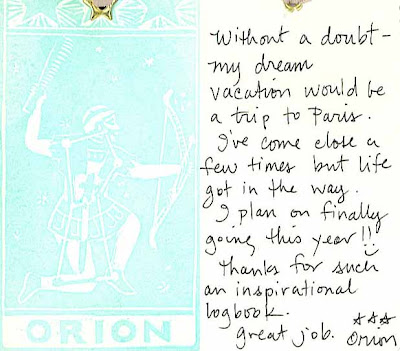 ORION
Without a doubt -
my dream
vacation would be
a trip to Paris.
I've come close a
few times but life
got in the way.
I plan on finally
going this year!!
Thanks for such
an inspirational
logbook.
great job.
Orion